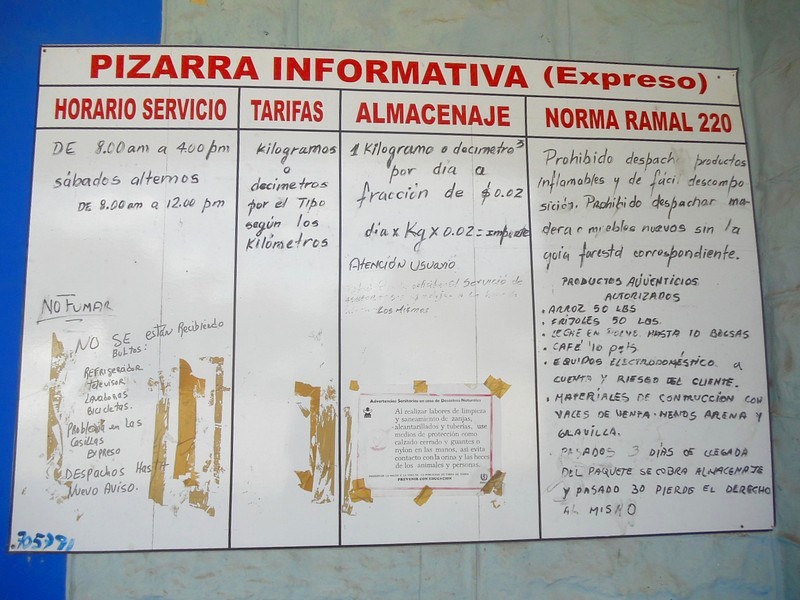 PIZARRA INFORMATIVA (Expreso)
HORARIO SERVICIO
DE 8.00am a 4.00pm
sábados alternos
DE 8.00am a 12.00 pm
NO FUMAR
NO SE están Recibiendo
Bultos:
Refrigerador
Televisor
Lavadoras
Bicicletas.
Problema en las
Casillas
Expreso
DESPACHOS HASTA
Nuevo Aviso.
TARIFAS
Kilogramos
o
decimetros
por el Tipo
según los
Kilómetros
ALMACENAJE
1 Kilogramo o decimetro³
por día a
fracción de $0.02
día x Kg x 0.02 = importe
ATENCIÓN USUARIO
el Servicio de
Los Mismos
Advertencias Sanitarias en caso de Desastres Naturales
Al realizar labores de limpieza
y saneamiento de zanjas,
alcantarillados y tuberías, use
medios de protección como
calzado cerrado y guantes o
nylon en las manos, así evita
contacto con la orina y las heces
de los animales y personas.
PREVENIR CON EDUCACION
NORMA RAMAL 220
Prohibido despacho productos
Inflamables y de fácil descompo
sición. Prohibido despachar ma-
dera o muebles nuevos sin la
guia forestal correspondiente.
PRODUCTOS ALIMENTICIOS
AUTORIZADOS
• ARROZ 50 LBS
• FRIJOLES 50 LBS.
• LECHE EN POLVO. HASTA 10 BOLSAS
• CAFÉ 10 pqts.
• EQUIPOS ELECTRODOMÉSTICO. a
CUENTA Y RIESGO DEL CLIENTE.
• MATERIALES DE CONTRUCCIÓN CON
VALES DE VENTA. MENOS ARENA Y
GRAVILLA.
• PASADOS 3 DIAS DE LLEGADA
DEL PAQUETE SE COBRA ALMACENAJE
Y PASADO 30 PIERDE EL DERECHO
AL MISMO